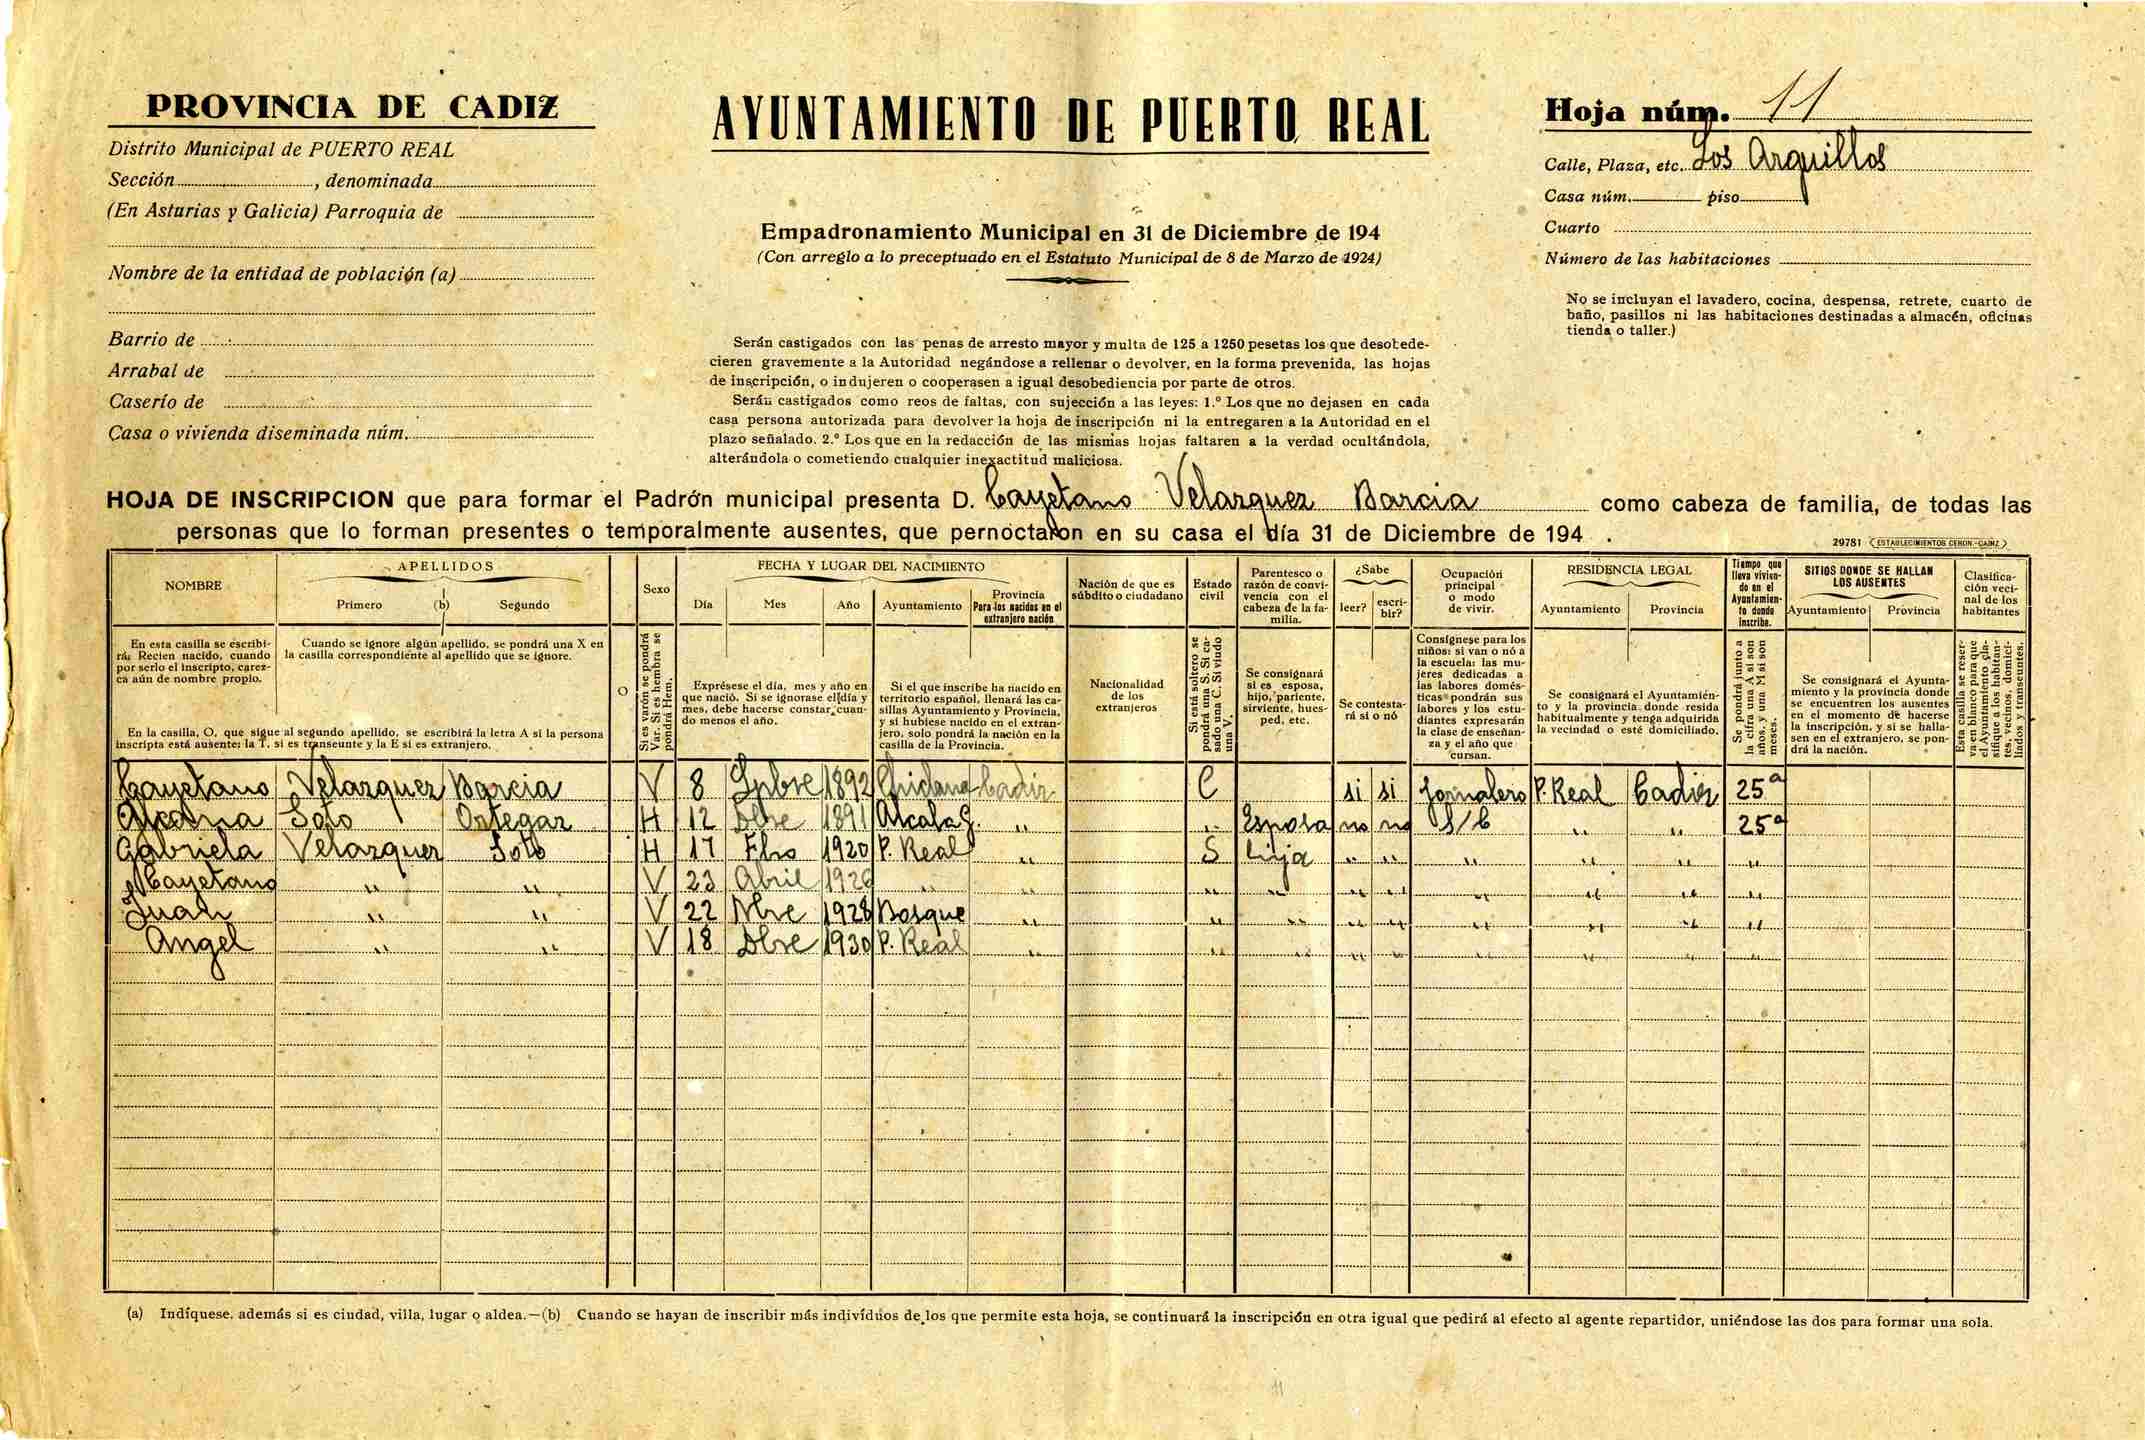 PROVINCIA DE CADIZ
Distrito Municipal de PUERTO REAL
Sección, denominada
(En Asturias y Galicia) Parroquia de
Nombre de la entidad de población (a)
Barrio de
Arrabal de
Caserío de
Casa o vivienda diseminada núm.
AYUNTAMIENTO DE PUERTO REAL
Empadronamiento Municipal en 31 de Diciembre de 194
(Con arreglo a lo preceptuado en el Estatuto Municipal de 8 de Marzo de 1924)
Serán castigados con las penas de arresto mayor y multa de 125 a 1250 pesetas los que desobede-
cieren gravemente a la Autoridad negándose a rellenar o devolver, en la forma prevenida, las hojas
de inscripción, o indujeren o cooperasen a igual desobediencia por parte de otros.
Serán castigados como reos de faltas, con sujección a las leyes: 1.º Los que no dejasen en cada
casa persona autorizada para devolver la hoja de inscripción ni la entregaren a la Autoridad en el
plazo señalado. 2.º Los que en la redacción de las mismas hojas faltaren a la verdad ocultándola,
alterándola o cometiendo cualquier inexactitud maliciosa.
Hoja núm. 11
Calle, Plaza, etc. Los Arquillos
Casa núm. piso
Cuarto
Número de las habitaciones
No se incluyan el lavadero, cocina, despensa, retrete, cuarto de
baño, pasillos ni las habitaciones destinadas a almacén, oficinas
tienda o taller.)
HOJA DE INSCRIPCION que para formar el Padrón municipal presenta D. Cayetano Velazquez Barcia como cabeza de familia, de todas las
personas que lo forman presentes o temporalmente ausentes, que pernoctaron en su casa el día 31 de Diciembre de 194 .
29781 (ESTABLECIMIENTOS CERON.-CADIZ)
NOMBRE
APELLIDOS
Primero (b) Segundo
Sexo
FECHA Y LUGAR DEL NACIMIENTO
Día Mes Año Ayuntamiento
Provincia
Para los nacidos en el
extranjero nación
Nación de que es
súbdito o ciudadano
Estado
civil
Parentesco o
razón de convi-
vencia con el
cabeza de la fa-
milia.
¿Sabe
leer?
escri-
bir?
Ocupación
principal
o modo
de vivir.
RESIDENCIA LEGAL
Ayuntamiento Provincia
Tiempo que
lleva vivien-
do en el
Ayuntamien-
to donde
inscribe.
SITIOS DONDE SE HALLAN
LOS AUSENTES
Ayuntamiento Provincia
Clasifica-
ción veci-
nal de los
habitantes
En esta casilla se escribi-
rá: Recien nacido, cuando
por serlo el inscripto, carez-
ca aún de nombre propio.
Cuando se ignore algún apellido, se pondrá una X en
la casilla correspondiente al apellido que se ignore.
En la casilla, O, que sigue al segundo apellido, se escribirá la letra A si la persona
inscripta está ausente; la T, si es transeunte y la E si es extranjero.
O
Si es varón se pondrá
Var. Si es hembra se
pondrá Hem.
Exprésese el día, mes y año en
que nació. Si se ignorase el día y
mes, debe hacerse constar, cuan-
do menos el año.
Si el que inscribe ha nacido en
territorio español, llenará las ca-
sillas Ayuntamiento y Provincia,
y si hubiese nacido en el extran-
jero, solo pondrá la nación en la
casilla de la Provincia.
Nacionalidad
de los
extranjeros
Si está soltero se
pondrá una S. Si ca-
sado una C. Si viudo
una V.
Se consignará
si es esposa,
hijo, pariente,
sirviente, hues-
ped, etc.
Se contesta-
rá si o nó
Consígnese para los
niños: si van o nó a
la escuela: las mu-
jeres dedicadas a
las labores domés-
ticas pondrán sus
labores y los estu-
diantes expresarán
la clase de enseñan-
za y el año que
cursan.
Se consignará el Ayuntamien-
to y la provincia donde resida
habitualmente y tenga adquirida
la vecindad o esté domiciliado.
Se pondrá junto a
la cifra una A si son
años, y una M si son
meses.
Se consignará el Ayunta-
miento y la provincia donde
se encuentren los ausentes
en el momento de hacerse
la inscripción, y si se halla-
sen en el extranjero, se pon-
drá la nación.
Esta casilla se reser-
va en blanco para que
el Ayuntamiento cla-
sifique a los habitan-
tes, vecinos, domici-
liados y transeuntes.
Cayetano Velazquez Barcia V 8 Spbre 1892 Chiclana Cadiz C si si Jornalero P. Real Cadiz 25 a
Soto Ortegar H 12 Dbre 1891 Alcala G. " " Esposa no no S/C " " 25 a
Gabriela Velazquez Soto H 17 Fbro 1920 P. Real " S hija " " " " " "
Cayetano " " V 23 Abril 1926 " " " " " " " " " "
Juan " " V 22 Nbre 1928 Bosque " " " " " " " " "
Angel " " V 18 Dbre 1930 P. Real " " " " " " " " "
(a) Indíquese. además si es ciudad, villa, lugar o aldea.—(b) Cuando se hayan de inscribir más individuos de los que permite esta hoja, se continuará la inscripción en otra igual que pedirá al efecto al agente repartidor, uniéndose las dos para formar una sola.
11